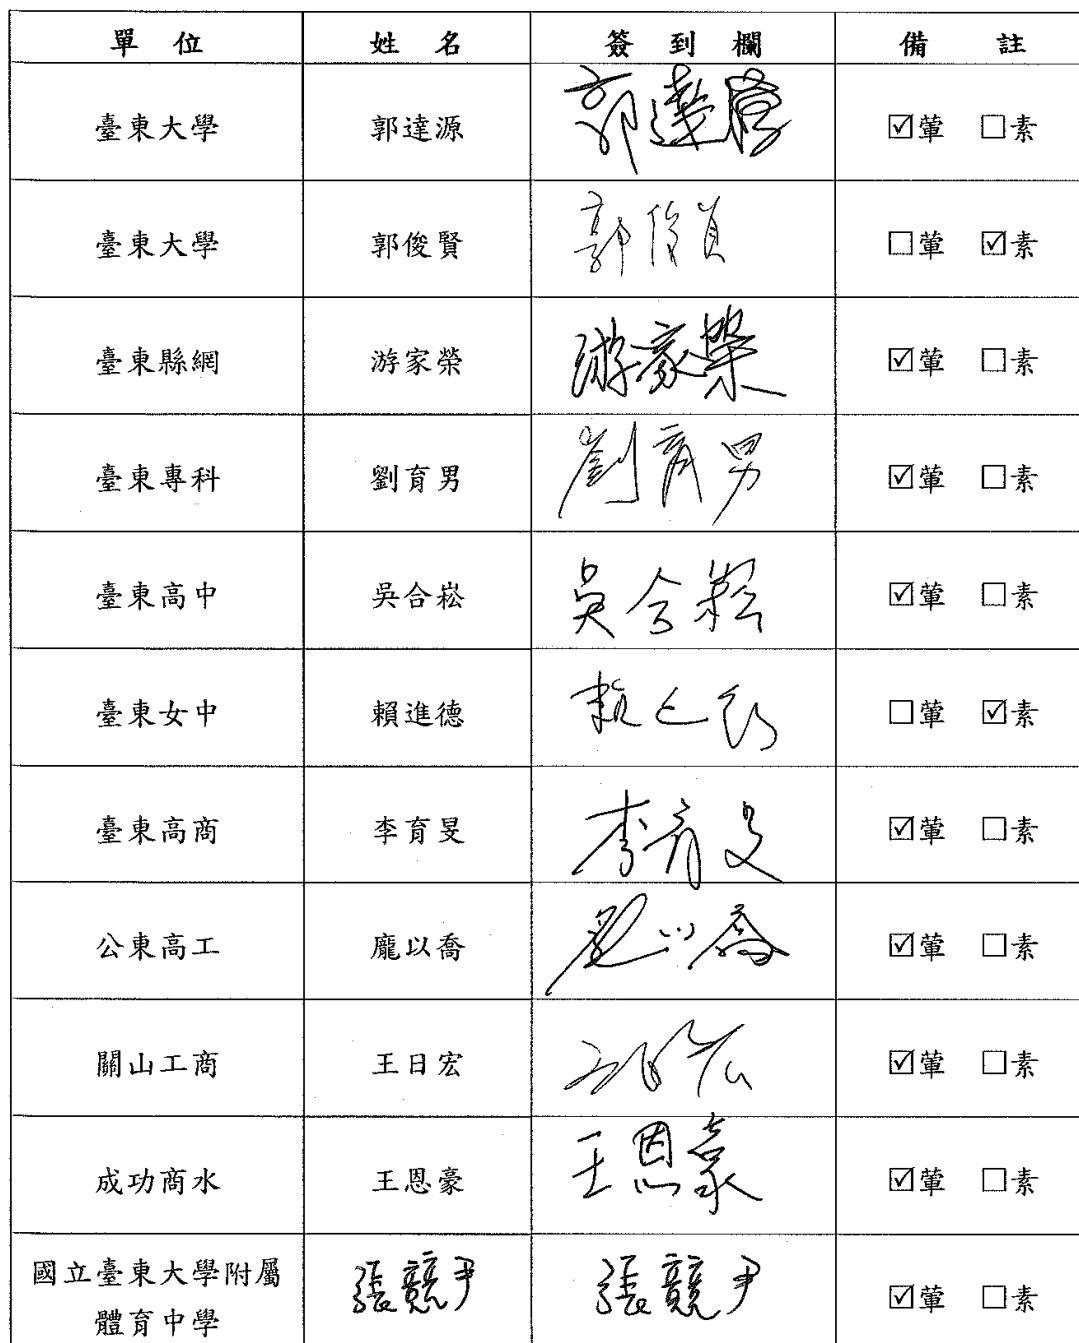 單位 姓名 簽到欄 備註
臺東大學 郭達源 郭達源 ☑葷 ☐素
臺東大學 郭俊賢 郭俊賢 ☐葷 ☑素
臺東縣網 游家榮 游家榮 ☑葷 ☐素
臺東專科 劉育男 劉育男 ☑葷 ☐素
臺東高中 吳合崧 吳合崧 ☑葷 ☐素
臺東女中 賴進德 賴進德 ☐葷 ☑素
臺東高商 李育旻 李育旻 ☑葷 ☐素
公東高工 龐以喬 龐以喬 ☑葷 ☐素
關山工商 王日宏 王日宏 ☑葷 ☐素
成功商水 王恩豪 王恩豪 ☑葷 ☐素
國立臺東大學附屬
體育中學 張競尹 張競尹 ☑葷 ☐素